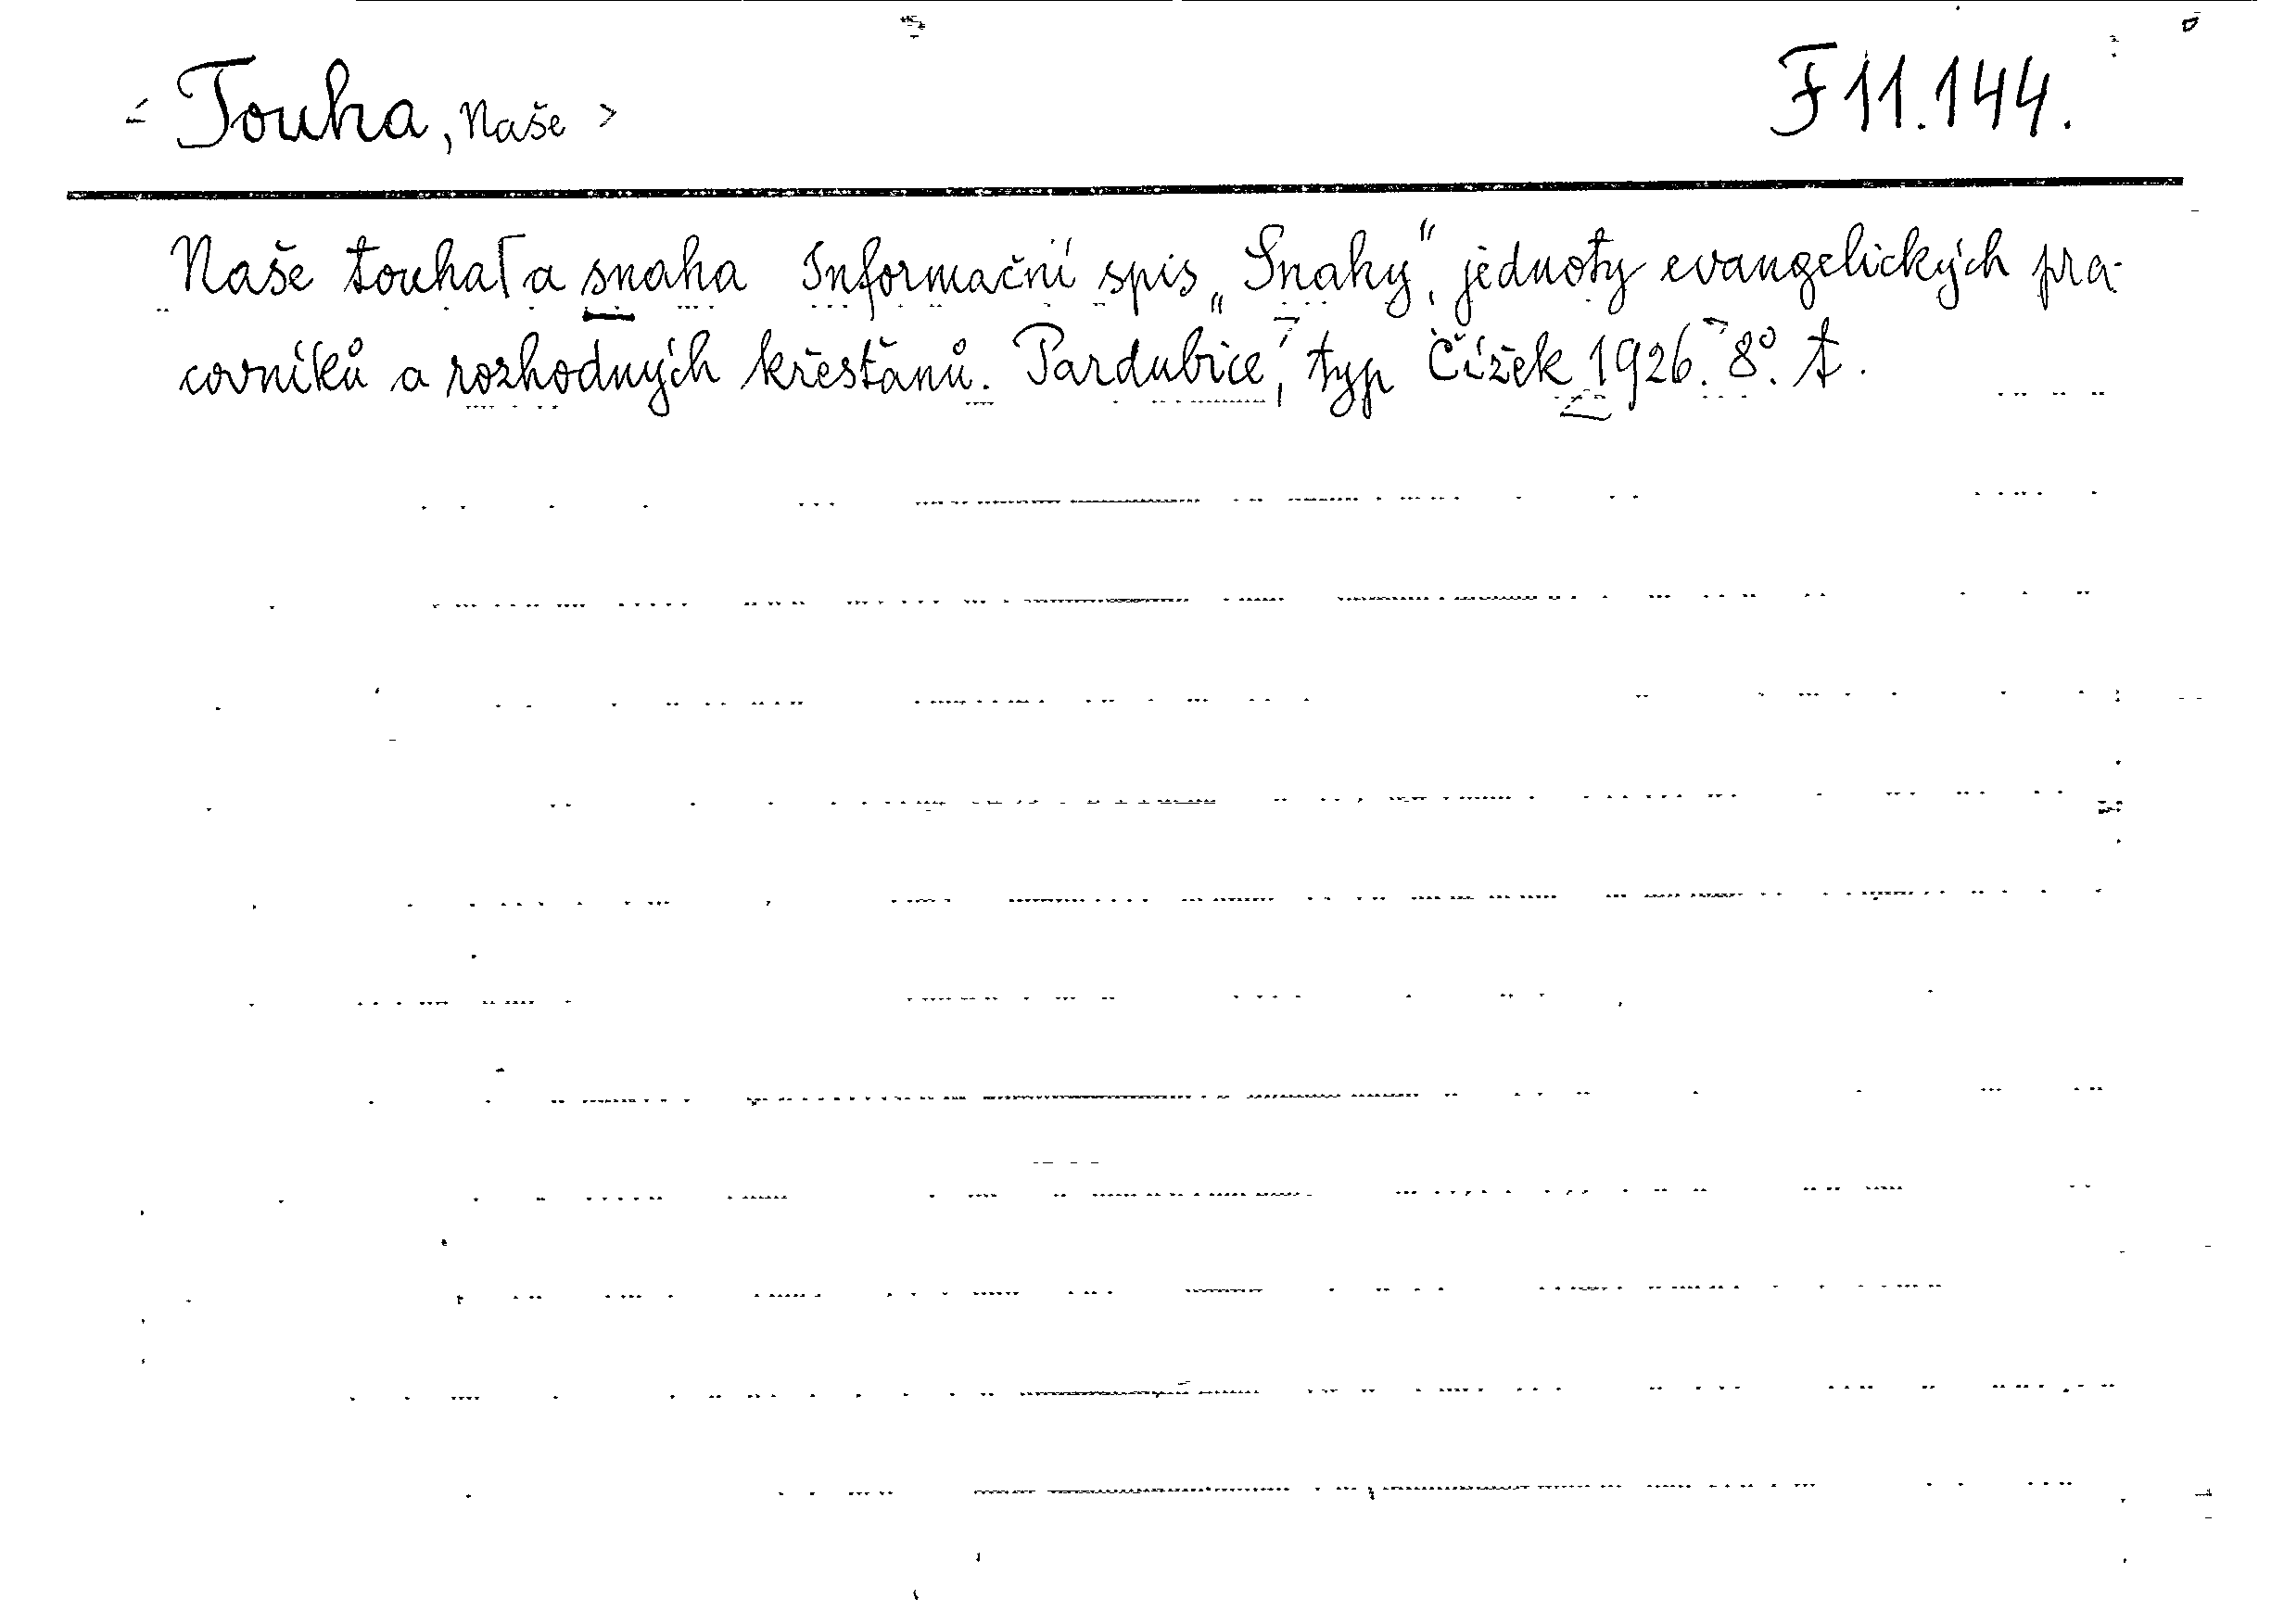 < Touha, Naše >
F 11.144.
Naše touha a snaha Informační spis „Snahy“, jednoty evangelických pra-
covníků a rozhodných křesťanů. Pardubice, typ Čížek 1926. 8°. A.